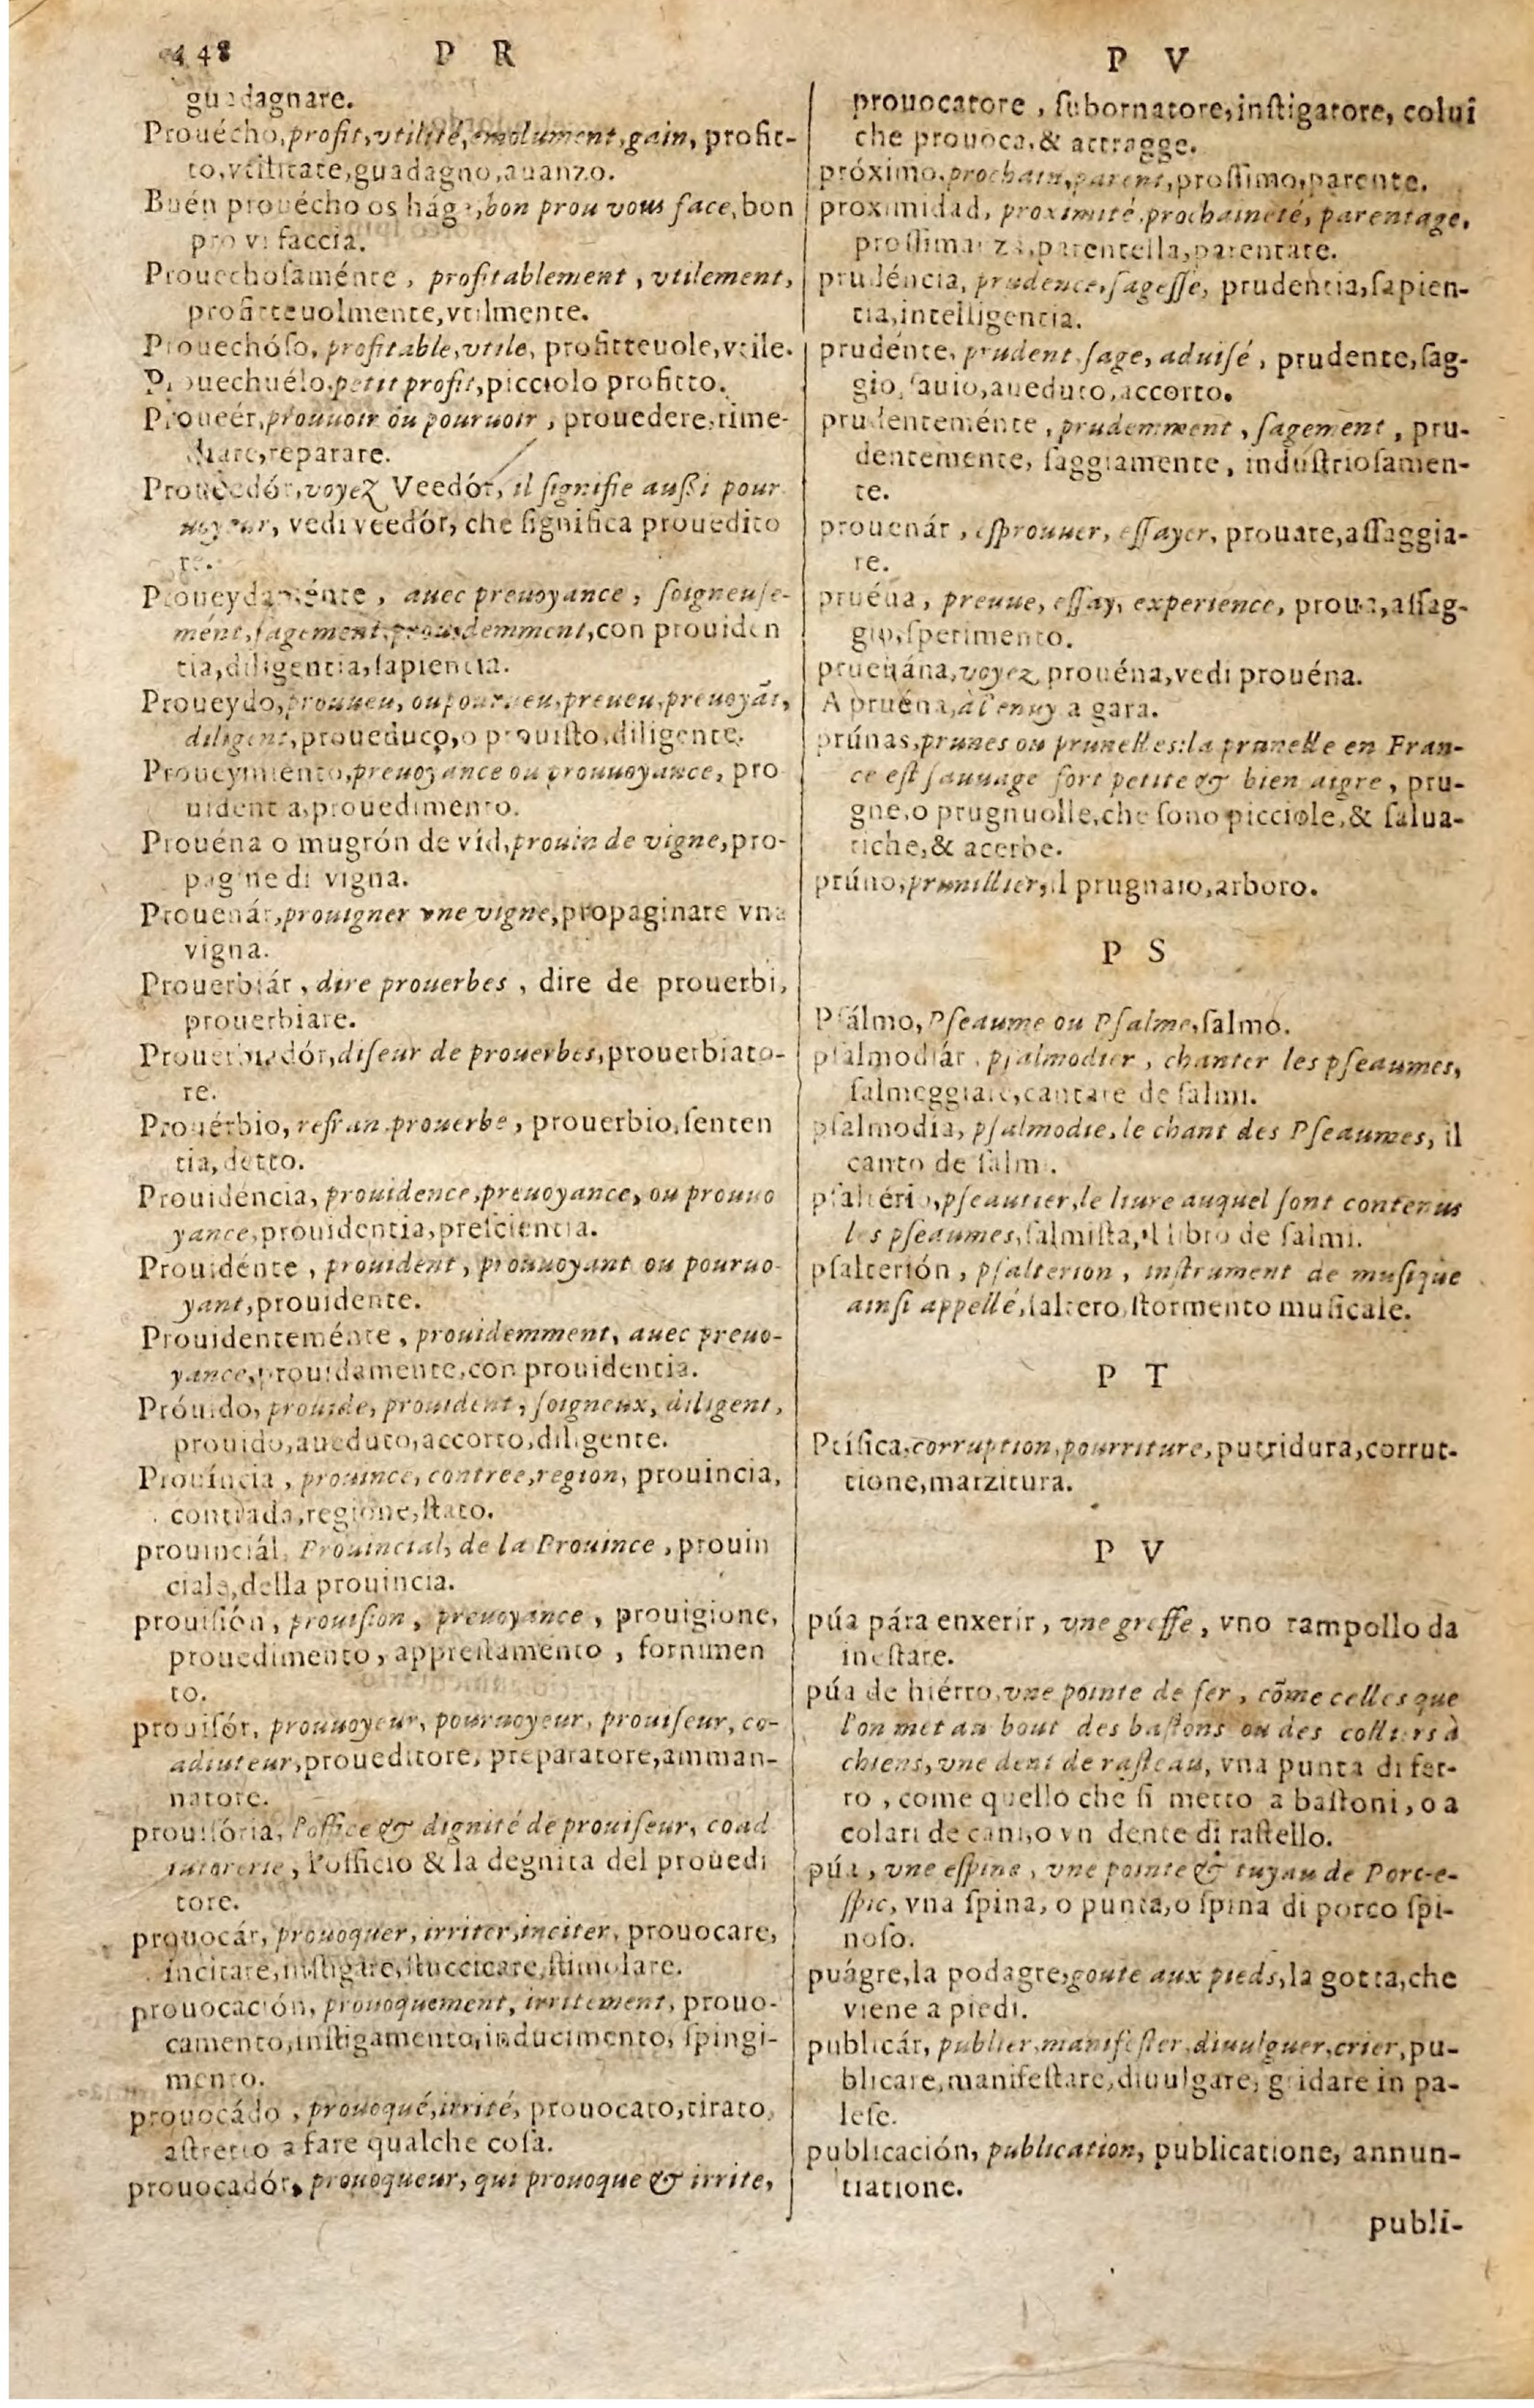 448 P R
guadagnare.
Prouécho, profit, vtilité, emolument, gain, profit-
to, vtilitate, guadagno, auanzo.
Buén prouécho os hága, bon prou vous face, bon
pro vi faccia.
Prouechoſaménte, profitablement, vtilement,
profitteuolmente, vtilmente.
Prouechóſo, profitable, vtile, profitteuole, vtile.
Prouechuélo, petit profit, picciolo profitto.
Proueér, prouuoir ou pouruoir, prouedere, rime-
diare, reparare.
Proueedór, voyez Veedór, il ſignifie außi pour
uoyeur, vedi veedór, che ſignifica prouedito
re.
Proueydaménte, auec preuoyance, ſoigneuſe-
mént, ſagement, prouidemment, con prouiden
tia, diligentia, ſapientia.
Proueydo, prouueu, ou pourueu, preueu, preuoyãt,
diligent, proueduto, o prouiſto, diligente.
Proueymiénto, preuoyance ou prouuoyance, pro
uidentia, prouedimento.
Prouéna o mugrón de vid, prouin de vigne, pro-
pagine di vigna.
Prouenár, prouigner vne vigne, propaginare vna
vigna.
Prouerbiár, dire prouerbes, dire de prouerbi,
prouerbiare.
Prouerbiadór, diſeur de prouerbes, prouerbiato-
re.
Prouérbio, refran, prouerbe, prouerbio, ſenten
tia, detto.
Prouidéncia, prouidence, preuoyance, ou prouuo
yance, prouidentia, preſcientia.
Prouidénte, prouident, prouuoyant ou pouruo-
yant, prouidente.
Prouidenteménte, prouidemment, auec preuo-
yance, prouidamente, con prouidentia.
Próuido, prouide, prouident, ſoigneux, diligent,
prouido, aueduto, accorto, diligente.
Prouíncia, prouince, contree, region, prouincia,
contrada, regione, ſtato.
prouinciál, Prouincial, de la Prouince, prouin
ciale, della prouincia.
prouiſión, prouiſion, preuoyance, prouigione,
prouedimento, appreſtamento, fornimen
to.
prouiſór, prouuoyeur, pouruoyeur, prouiſeur, co-
adiuteur, proueditore, preparatore, amman-
natore.
prouiſória, l'office & dignité de prouiſeur, coad
iutorerie, l'officio & la degnita del prouedi
tore.
prouocár, prouoquer, irriter, inciter, prouocare,
incitare, inſtigare, ſtuccicare, ſtimolare.
prouocación, prouoquement, irritement, prouo-
camento, inſtigamento, inducimento, ſpingi-
mento.
prouocádo, prouoqué, irrité, prouocato, tirato,
aſtretto a fare qualche coſa.
prouocadór, prouoqueur, qui prouoque & irrite,
P V
prouocatore, ſubornatore, inſtigatore, colui
che prouoca, & attragge.
próximo, prochain, parent, proſſimo, parente.
proximidad, proximité, prochaineté, parentage,
proſſimanza, parentella, parentate.
prudéncia, prudence, ſageſſe, prudentia, ſapien-
tia, intelligentia.
prudénte, prudent, ſage, aduiſé, prudente, ſag-
gio, ſauio, aueduto, accorto.
prudenteménte, prudemment, ſagement, pru-
dentemente, ſaggiamente, induſtrioſamen-
te.
prouenár, eſprouuer, eſſayer, prouare, aſſaggia-
re.
pruéua, preuue, eſſay, experience, proua, aſſag-
gio, ſperimento.
pruenána, voyez prouéna, vedi prouéna.
A pruéna, à l'enuy a gara.
prúnas, prunes ou prunelles: la prunelle en Fran-
ce eſt ſauuage fort petite & bien aigre, pru-
gne, o prugnuolle, che ſono picciole, & ſalua-
tiche, & acerbe.
prúno, prunillier, il prugnaio, arboro.
P S
Pſálmo, Pſeaume ou Pſalme, ſalmo.
pſalmodiár, pſalmodier, chanter les pſeaumes,
ſalmeggiare, cantare de ſalmi.
pſalmodia, pſalmodie, le chant des Pſeaumes, il
canto de ſalmi.
pſaltério, pſeautier, le liure auquel ſont contenus
les pſeaumes, ſalmiſta, il libro de ſalmi.
pſalterión, pſalterion, inſtrument de muſique
ainſi appellé, ſaltero, ſtormento muſicale.
P T
Ptíſica, corruption, pourriture, putridura, corrut-
tione, marzitura.
P V
púa pára enxerir, vne greffe, vno rampollo da
ineſtare.
púa de hiérro, vne pointe de fer, cõme celles que
l'on met au bout des baſtons ou des colliers à
chiens, vne dent de raſteau, vna punta di fer-
ro, come quello che ſi metto a baſtoni, o a
colari de cani, o vn dente di raſtello.
púa, vne eſpine, vne pointe & tuyau de Porc-e-
ſpic, vna ſpina, o punta, o ſpina di porco ſpi-
noſo.
puágre, la podagre, goute aux pieds, la gotta, che
viene a piedi.
publicár, publier, manifeſter, diuulguer, crier, pu-
blicare, manifeſtare, diuulgare, gridare in pa-
leſe.
publicación, publication, publicatione, annun-
tiatione.
publi-